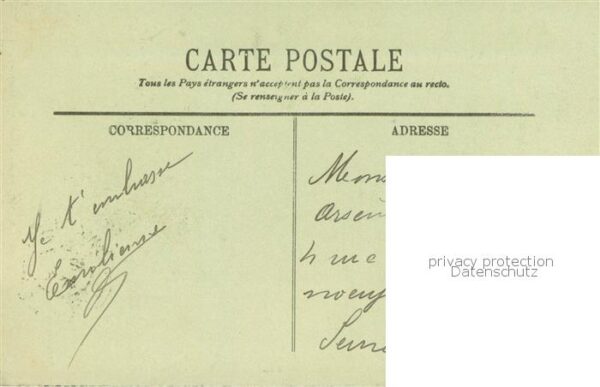 CARTE POSTALE
Tous les Pays étrangers n'acceptent pas la Correspondance au recto.
(Se renseigner à la Poste).
CORRESPONDANCE
ADRESSE
Je t'embrasse
Emilienne
4 rue
privacy protection
Datenschutz